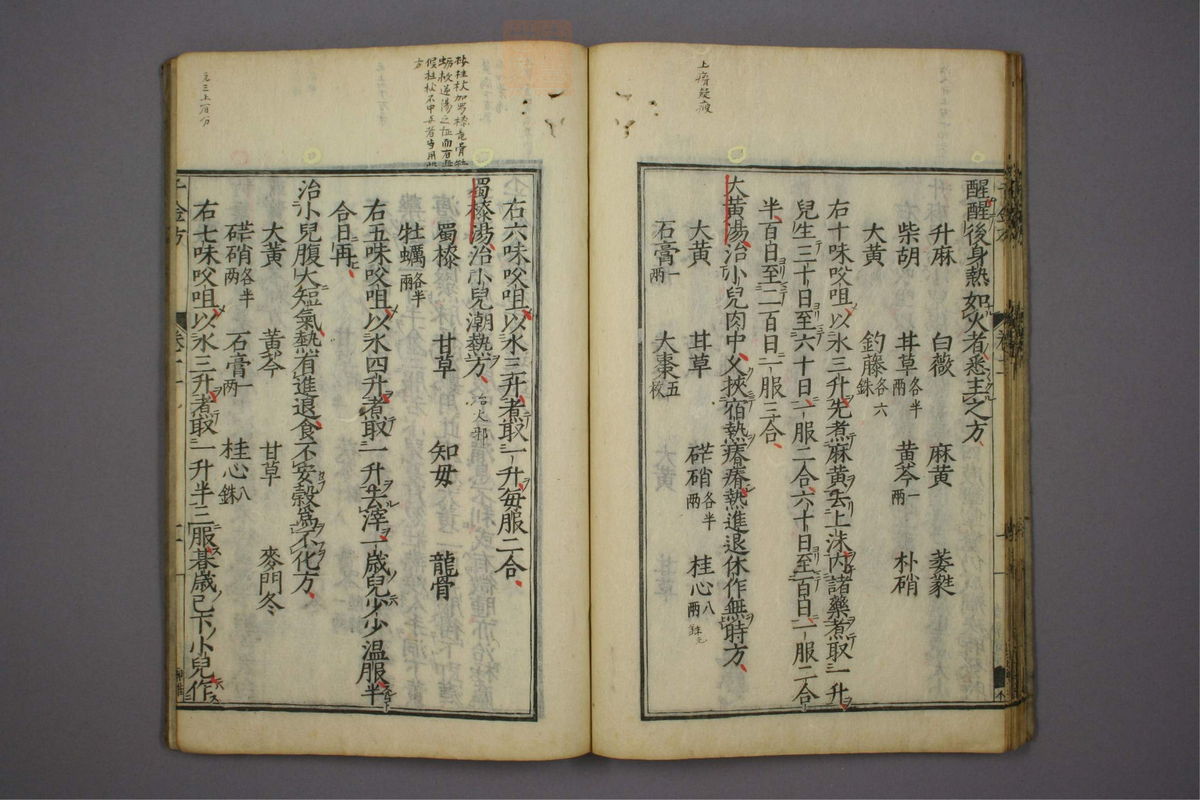 醒醒後身熱如火者悉主之方
升麻 白薇 麻黄 萎蕤
柴胡 甘草各半兩 黄芩一兩 朴硝
大黄 釣藤各六銖
右十味㕮咀以水三升先煮麻黄去上沫内諸藥煮取一升
兒生三十日至六十日一服二合六十日至百日一服二合
半百日至二百日一服三合
大黄湯治小兒肉中久挾宿熱瘠瘦熱進退休作無時方
大黄 甘草 硭硝各半兩 桂心八兩
石膏一兩 大棗五枚
右六味㕮咀以水三升煮取一升每服二合
蜀㯃湯治小兒潮熱方
蜀㯃 甘草 知母 龍骨
牡蠣各半兩
右五味㕮咀以水四升煮取一升去滓一歲兒少少温服半
合日再
治小兒腹大短氣熱有進退食不安穀爲不化方
大黄 黄芩 甘草 麥門冬
硭硝各半兩 石膏一兩 桂心八銖
右七味㕮咀以水三升煮取一升半三服朞歲已下小兒作
千金方 卷十一